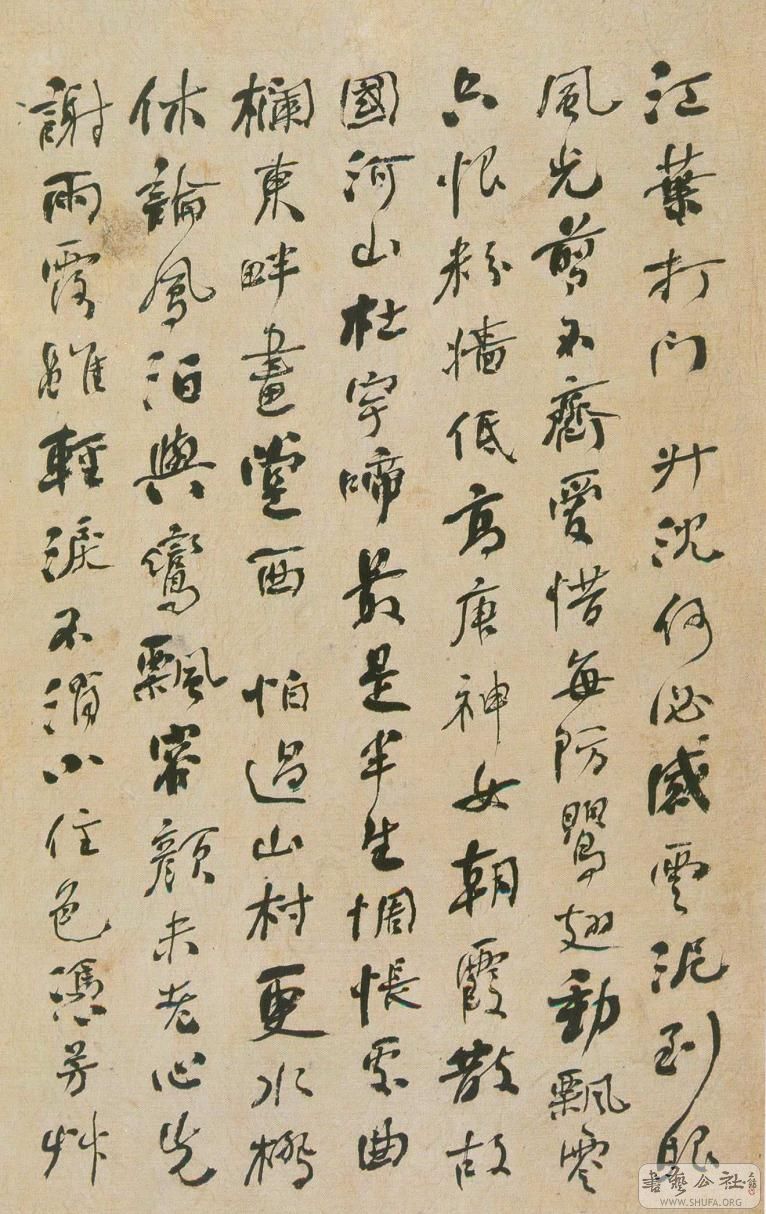 江葉打門　升沈何必感雲泥到眼
風光剪不齊愛惜每防鶯翅動飄零
只恨粉牆低高唐神女朝霞散故
國河山杜宇啼最是半生惆悵處曲
欄東畔畫堂西　怕過山村更水橋
休論鳳泊與鸞飄容顏未老心先
謝雨露雖輕淚不消小住色憑芳草
書藝公社
WWW.SHUFA.ORG